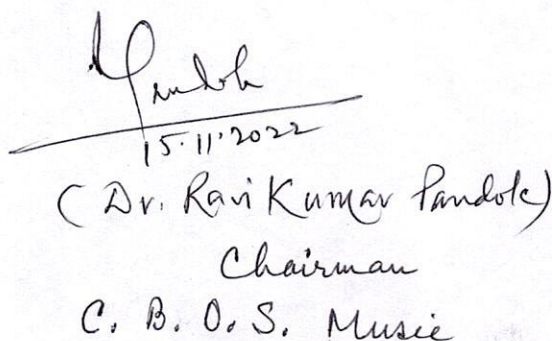 15.11.2022
(Dr. Ravi Kumar Pandole)
Chairman
C. B. O. S. Music